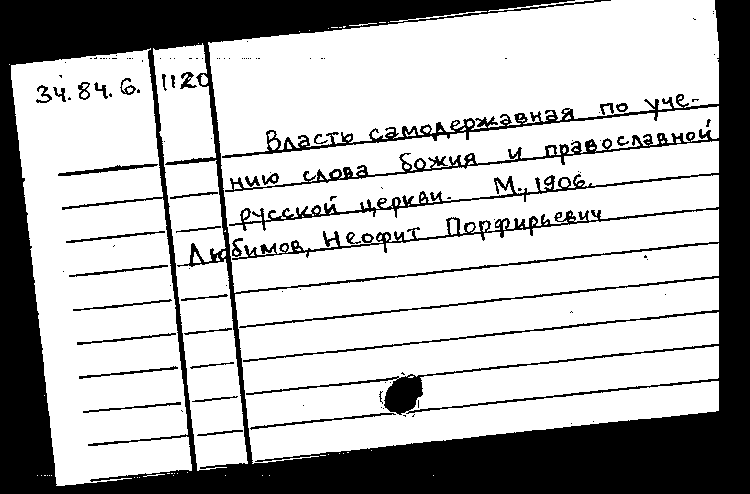 34.84.6. 1120
Власть самодержавная по уче-
нию слова божия и православной
русской церкви. М., 1906.
Любимов, Неофит Порфирьевич